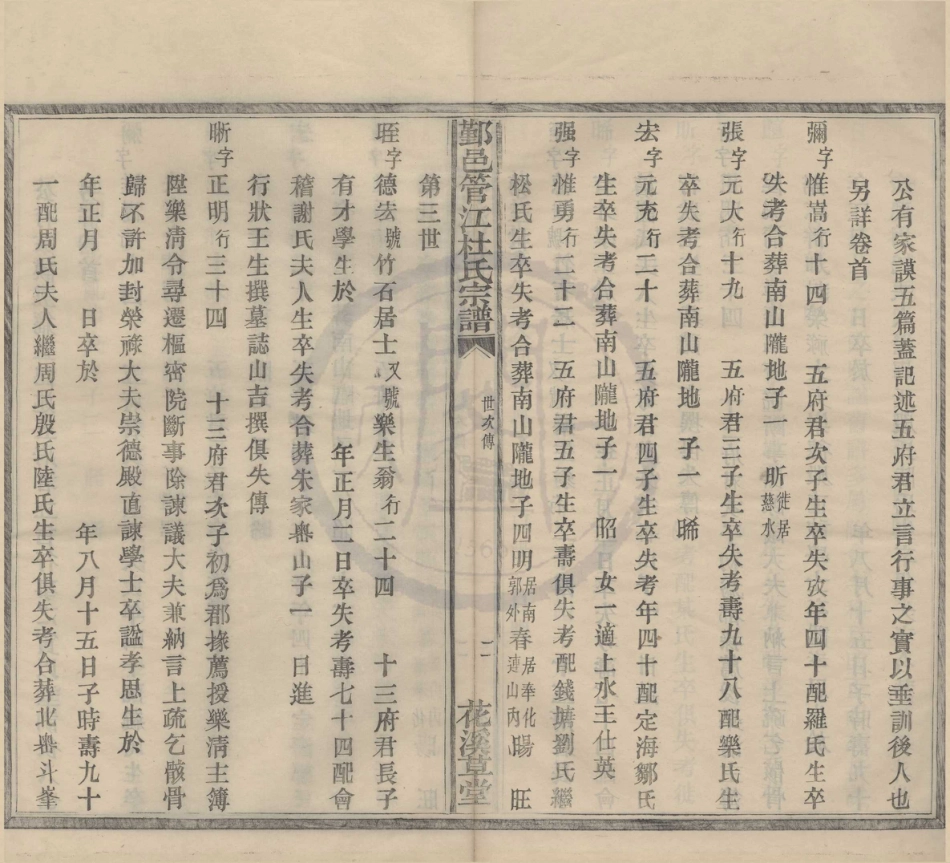 公有家謨五篇蓋記述五府君立言行事之實以垂訓後人也
另詳卷首
彌字惟嵩行十四 五府君次子生卒失攷年四十配羅氏生卒
失考合葬南山隴地子一 昕徙居慈水
張字元大行十九 五府君三子生卒失考壽九十八配樂氏生
卒失考合葬南山隴地 子一晞
宏字元充行二十 五府君四子生卒失考年四十配定海鄒氏
生卒失考合葬南山隴地子一昭 女一適上水王仕英
强字惟勇行二十三 五府君五子生卒壽俱失考配錢塘劉氏繼
松氏生卒失考合葬南山隴地子四明居南郭外春居奉化連山內暘 旺
鄞邑管江杜氏宗譜 世次傳 二 花溪草堂
第三世
珄字德宏號竹石居士又號樂生翁行二十四 十三府君長子
有才學生於 年正月二日卒失考壽七十四配會
稽謝氏夫人生卒失考合葬朱家嶴山子一 日進
行狀王生撰墓誌山吉撰俱失傳
晰字正明行三十四 十三府君次子初爲郡掾薦授樂清主簿
陞樂清令尋遷樞密院斷事除諫議大夫兼納言上疏乞骸骨
歸不許加封榮祿大夫崇德殿直諫學士卒謚孝思生於
年正月 日卒於 年八月十五日子時壽九十
一配周氏夫人繼周氏殷氏陸氏生卒俱失考合葬北嶴斗峯